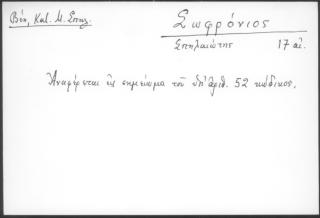 Βέη, Κατ. Μ. Σπηλ.
Σωφρόνιος
Σπηλαιώτης 17 αἰ.
Ἀναφέρεται εἰς σημείωμα τοῦ ὑπ' ἀριθ. 52 κώδικος.